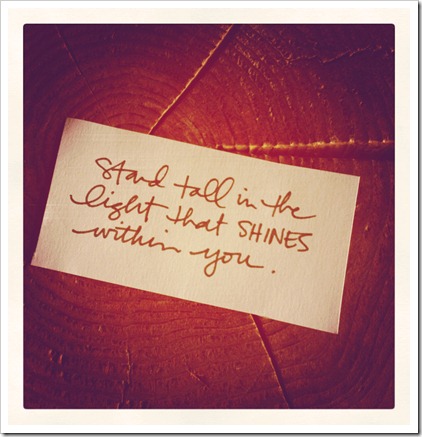 Stand tall in the
light that SHINES
within you.